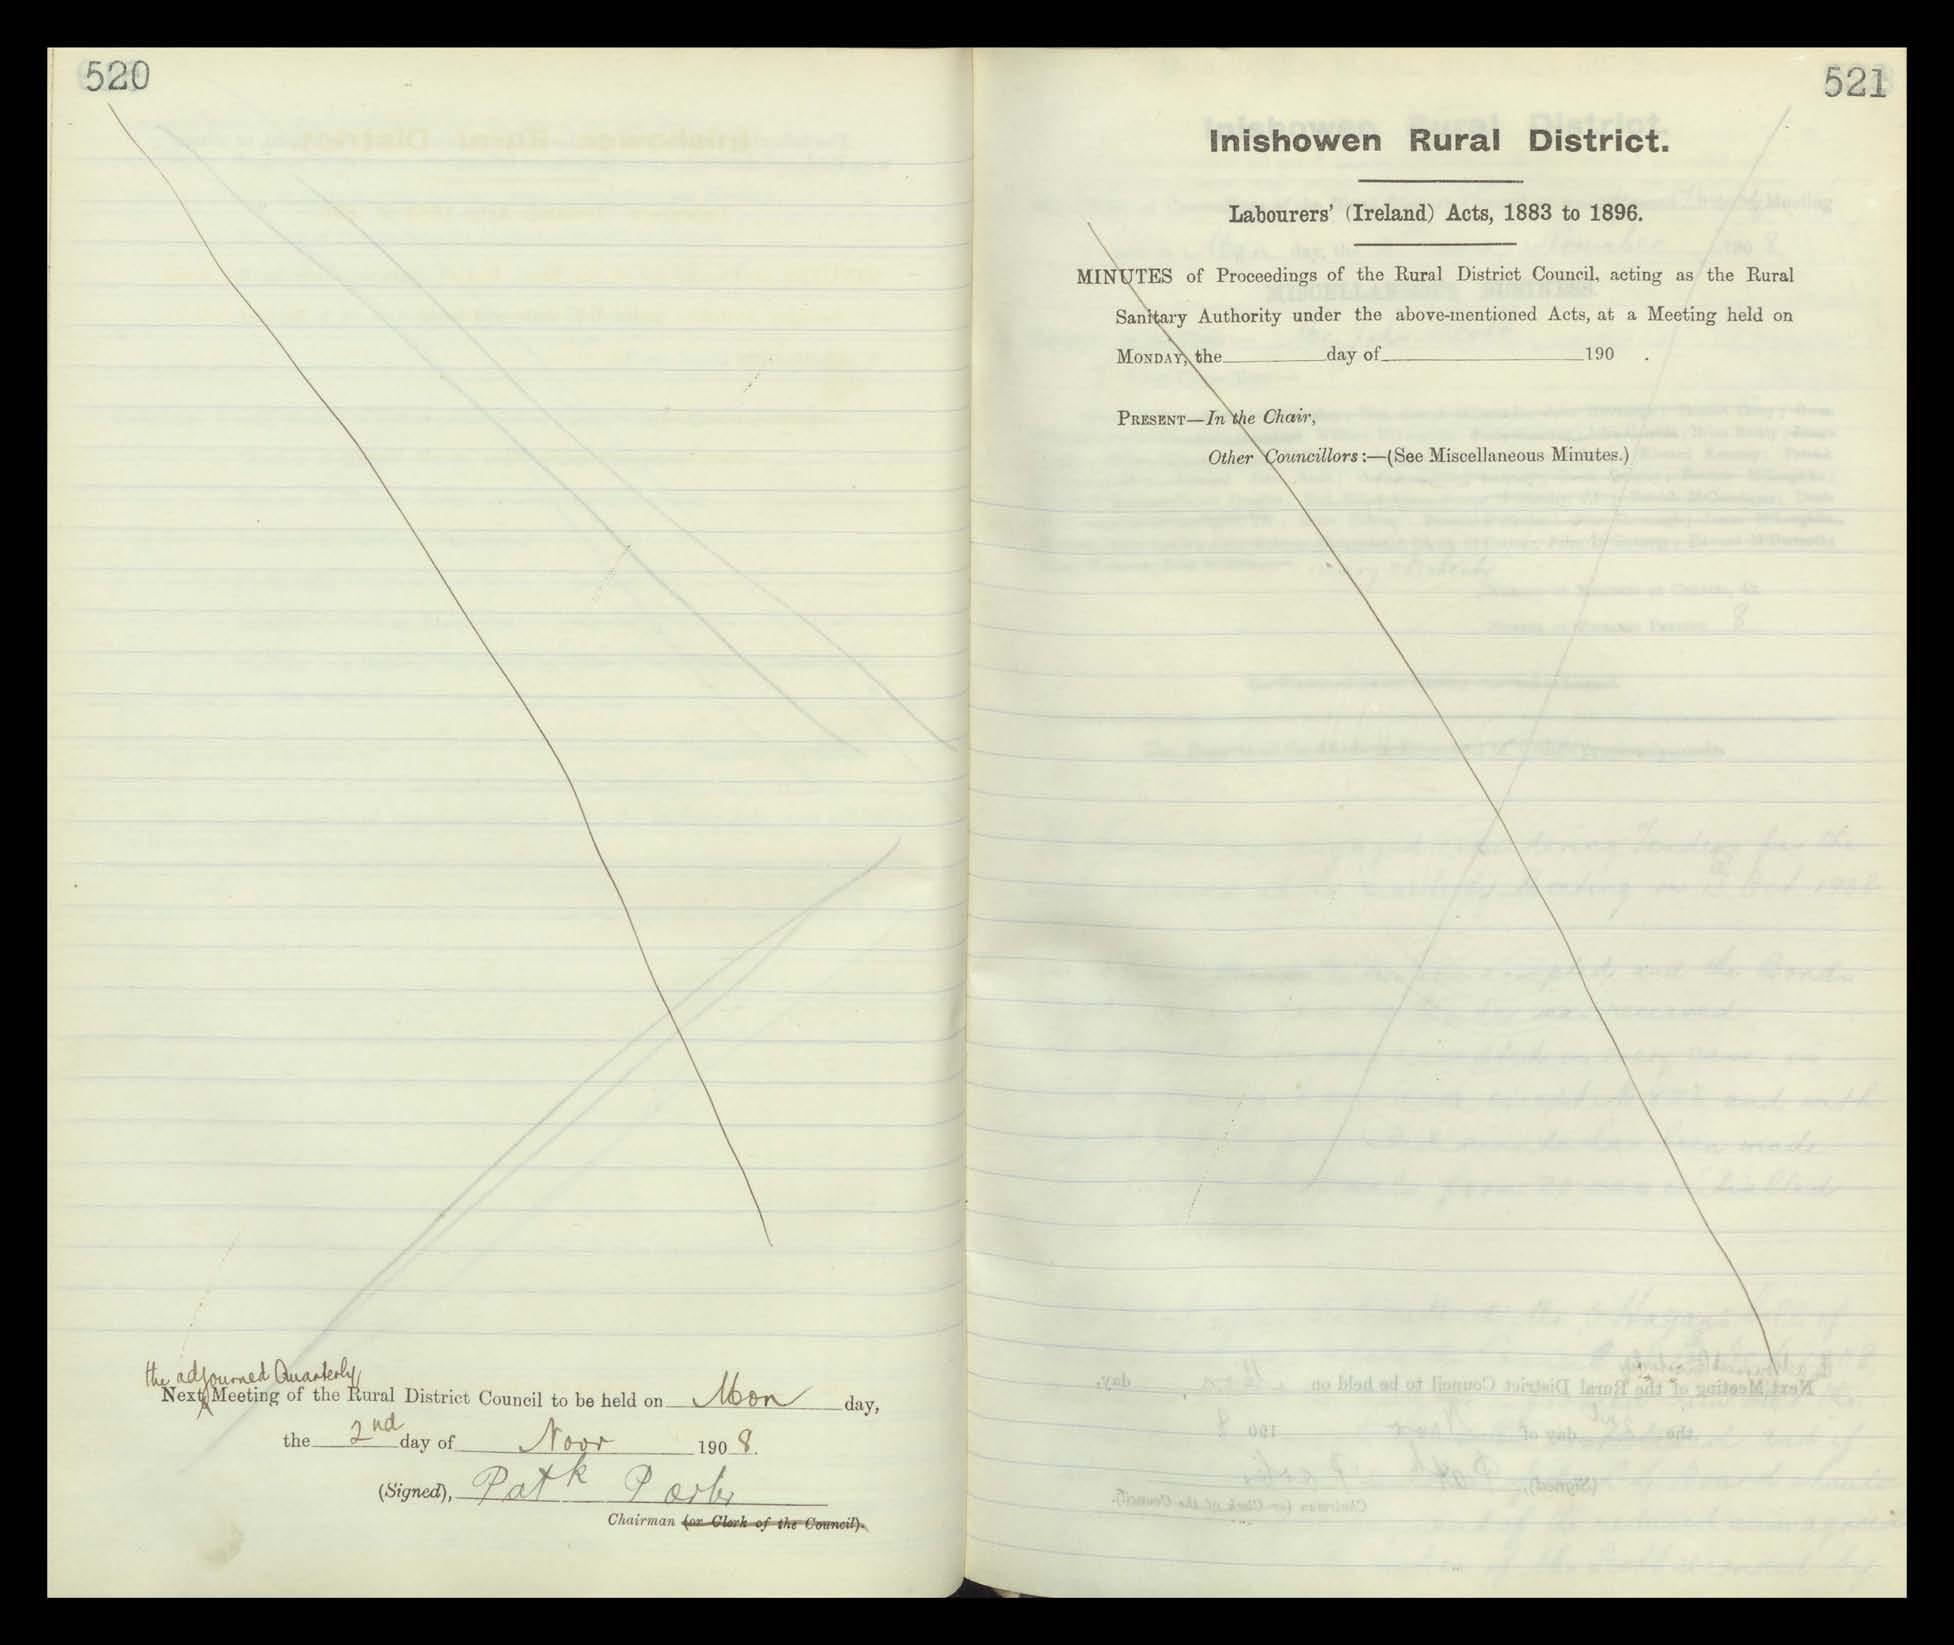 520
the adjourned Quarterly
Next Meeting of the Rural District Council to be held on Mon day,
the 2nd day of Novr 1908.
(Signed), Patk Porter
Chairman (or Clerk of the Council).
521
Inishowen Rural District.
Labourers' (Ireland) Acts, 1883 to 1896.
MINUTES of Proceedings of the Rural District Council, acting as the Rural
Sanitary Authority under the above-mentioned Acts, at a Meeting held on
MONDAY, the day of 190 .
PRESENT—In the Chair,
Other Councillors:—(See Miscellaneous Minutes.)